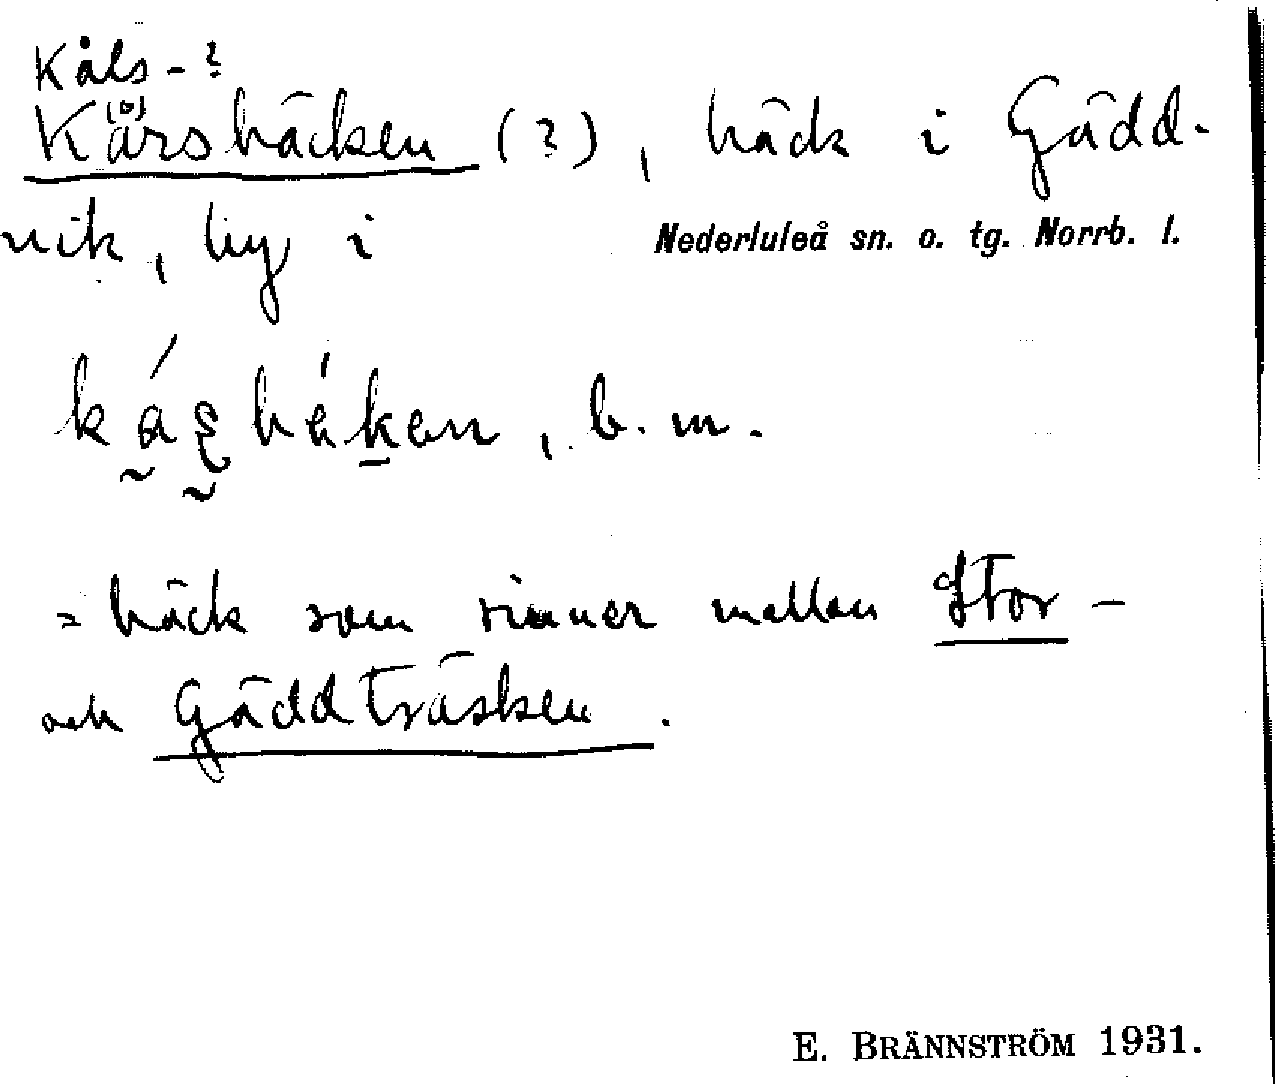 Kåls-?
Kårsbäcken (?), bäck i Gädd-
vik, by i Nederluleå sn. o. tg. Norrb. l.
b. m.
= bäck som rinner mellan Stor-
och Gäddträsken.
E. BRÄNNSTRÖM 1931.